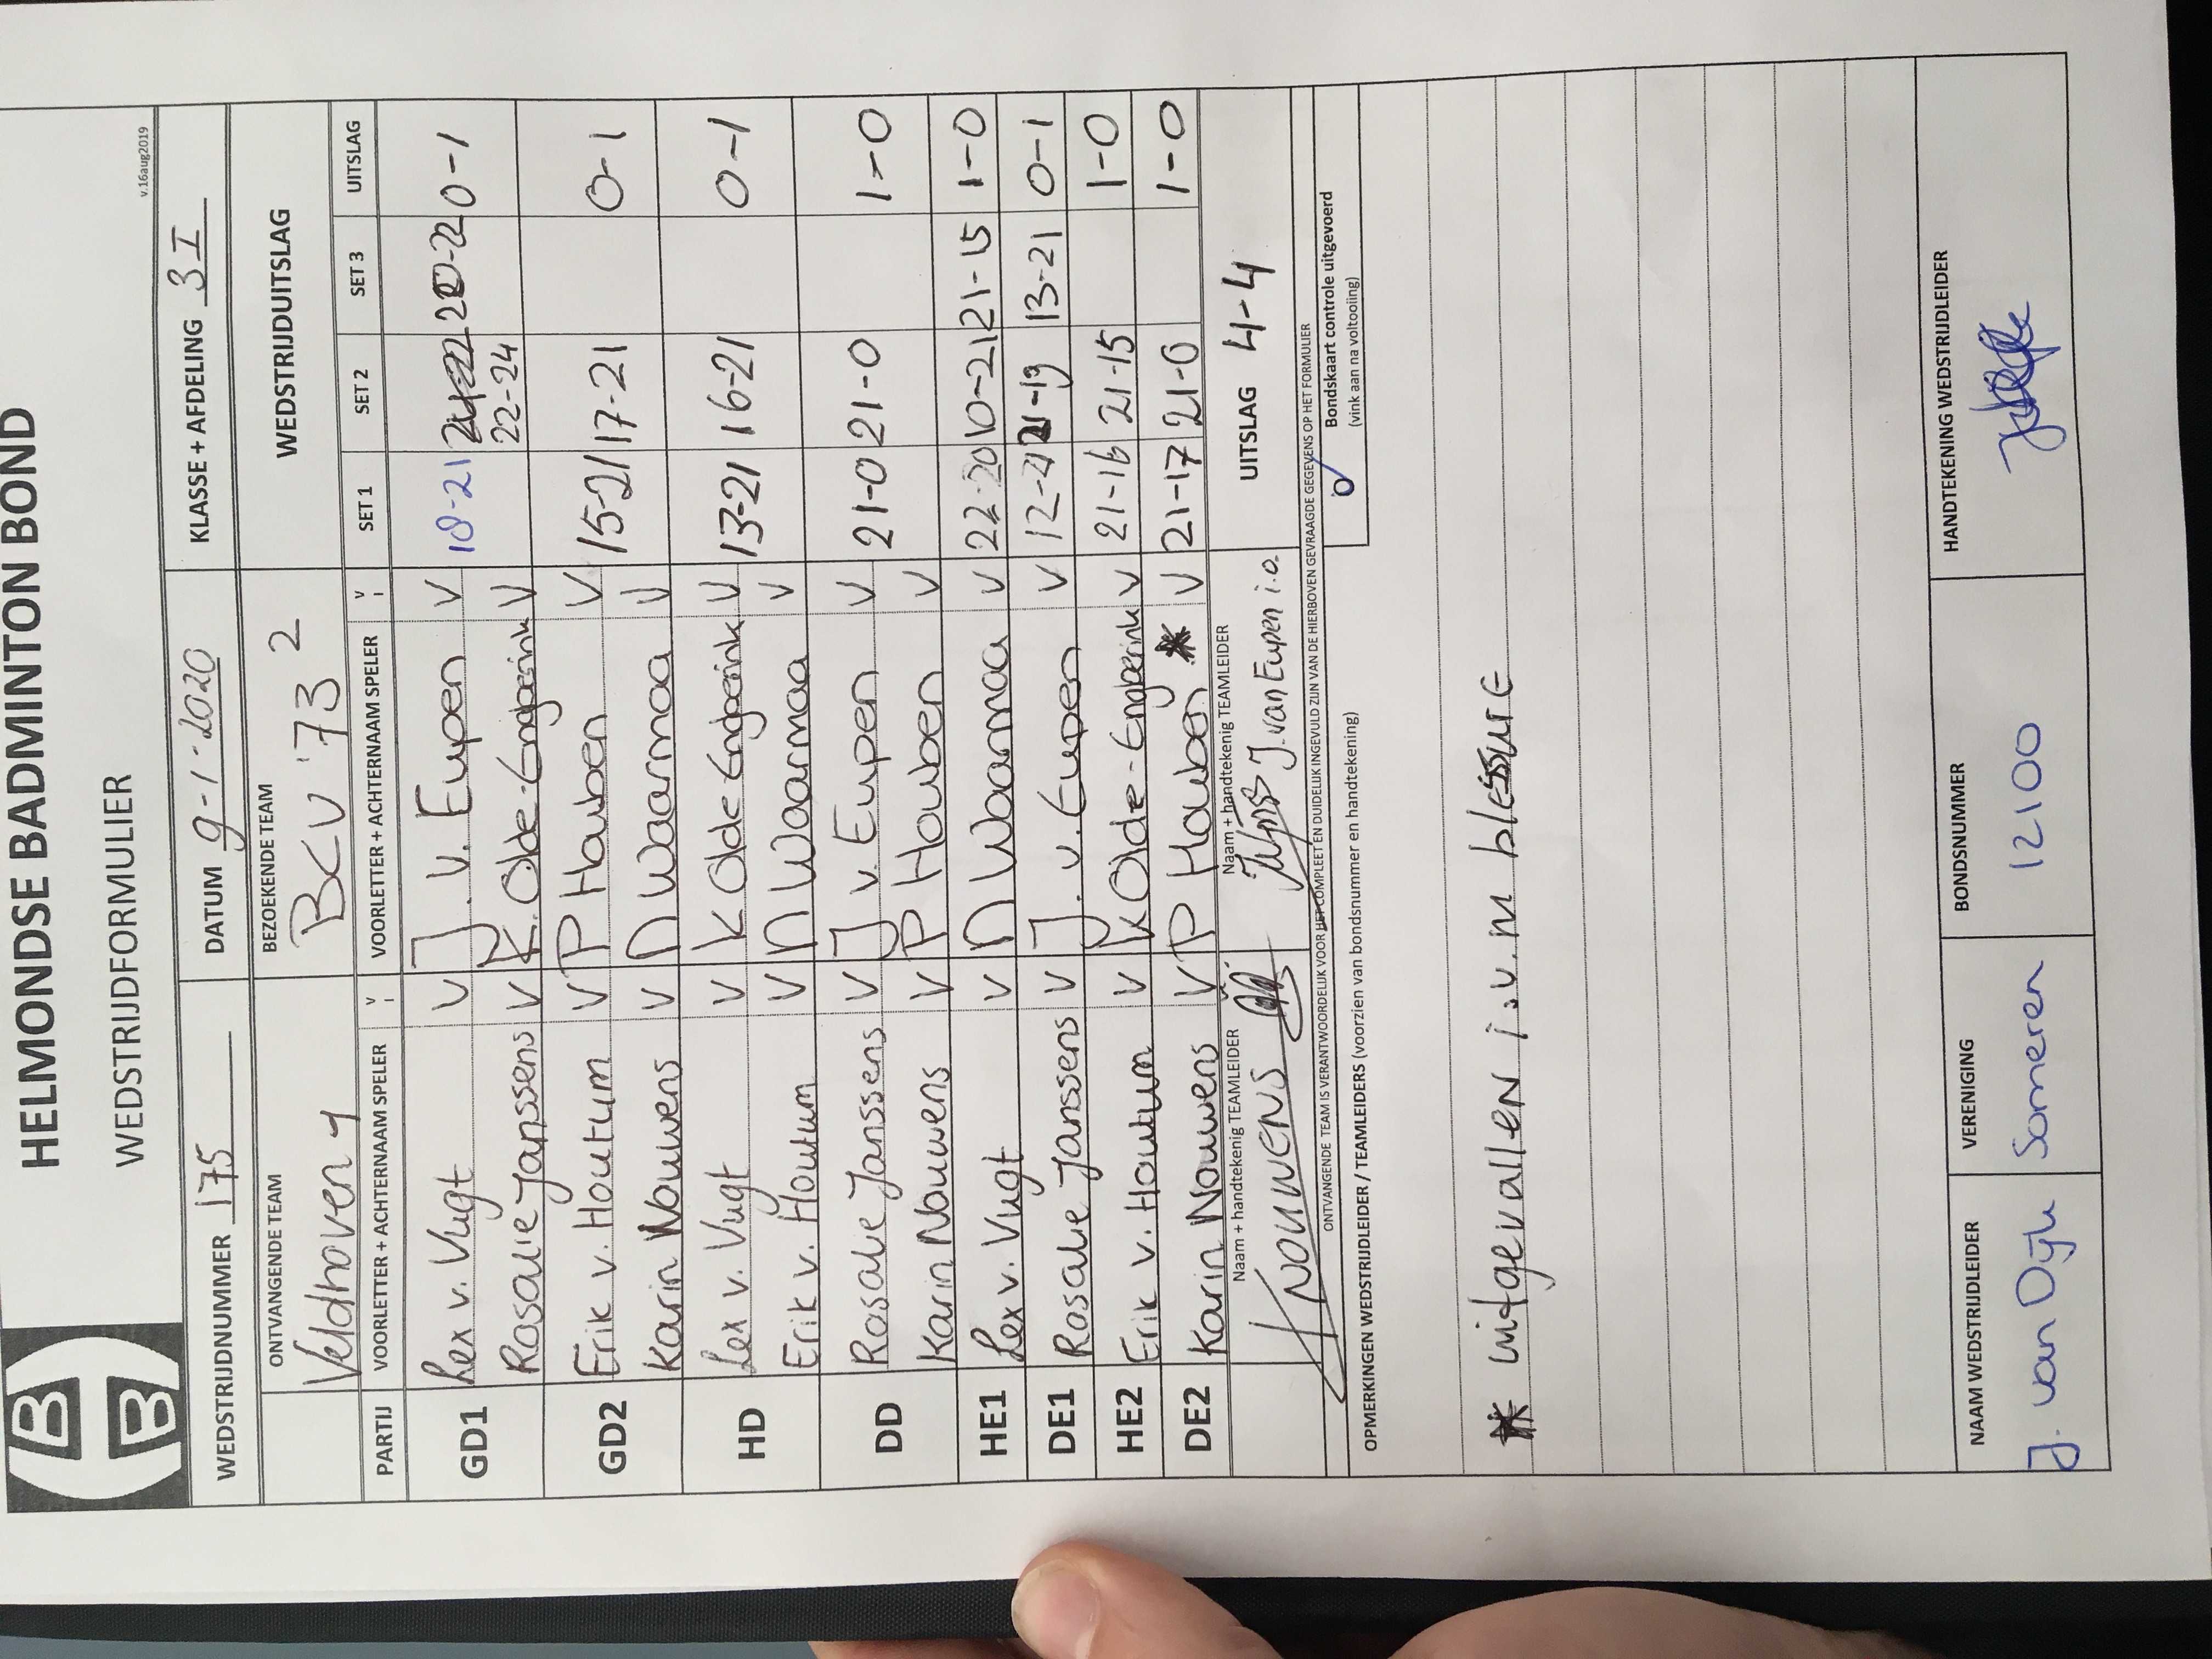 HELMONDSE BADMINTON BOND
WEDSTRIJDFORMULIER
v.16aug2019
WEDSTRIJDNUMMER 175 DATUM 9-1-2020 KLASSE + AFDELING 3 I
ONTVANGENDE TEAM BEZOEKENDE TEAM WEDSTRIJDUITSLAG
Veldhoven 4 BCV '73 2
PARTIJ VOORLETTER + ACHTERNAAM SPELER V I VOORLETTER + ACHTERNAAM SPELER V I SET 1 SET 2 SET 3 UITSLAG
GD1 Lex v. Vugt V J. v. Eupen V 18-21 0-1
Rosalie Janssens V K. Olde-Engberink V 22-24
GD2 Erik v. Houtum V P Houben V 15-21 17-21 0-1
Karin Nouwens V N Waarmaa V
HD Lex v. Vugt V K Olde Engberink V 13-21 16-21 0-1
Erik v. Houtum V N Waarmaa V
DD Rosalie Janssens V J v. Eupen V 21-0 21-0 1-0
Karin Nouwens V P Houben V
HE1 Lex v. Vugt V N Waarmaa V 22-20 10-21 21-15 1-0
DE1 Rosalie Janssens V J. v. Eupen V 12-21 21-19 13-21 0-1
HE2 Erik v. Houtum V K Olde-Engberink V 21-16 21-15 1-0
DE2 Karin Nouwens V P Houben * V 21-17 21-0 1-0
Naam + handtekenig TEAMLEIDER Naam + handtekenig TEAMLEIDER UITSLAG 4-4
NOUWENS J. van Eupen i.o.
ONTVANGENDE TEAM IS VERANTWOORDELIJK VOOR HET COMPLEET EN DUIDELIJK INGEVULD ZIJN VAN DE HIERBOVEN GEVRAAGDE GEGEVENS OP HET FORMULIER
Bondskaart controle uitgevoerd
(vink aan na voltooiing)
OPMERKINGEN WEDSTRIJDLEIDER / TEAMLEIDERS (voorzien van bondsnummer en handtekening)
* uitgevallen i.v.m blessure
NAAM WEDSTRIJDLEIDER VERENIGING BONDSNUMMER HANDTEKENING WEDSTRIJDLEIDER
J. van Dijk Someren 12100